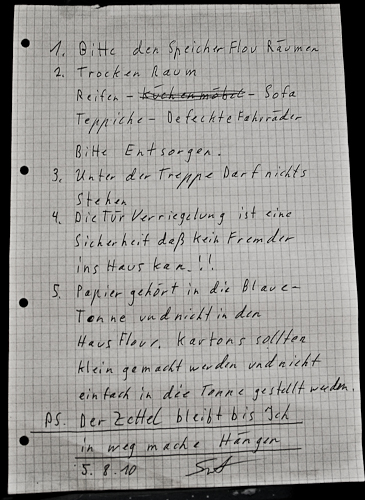 1. Bitte den Speicher Flou Räumen
2. Trocken Raum
Reifen – Küchenmöbel – Sofa
Teppiche – Defekte Fahrräder
Bitte Entsorgen.
3. Unter der Treppe Darf nichts
Stehen
4. Die Tür Verriegelung ist eine
Sicherheit daß kein Fremder
ins Haus kan.!!
5. Papier gehört in die Blaue-
Tonne und nicht in den
Haus Flour. Kartons sollten
klein gemacht werden und nicht
einfach in die Tonne gestellt werden.
PS. Der Zettel bleibt bis Ich
in weg mache Hängen
5.8.10